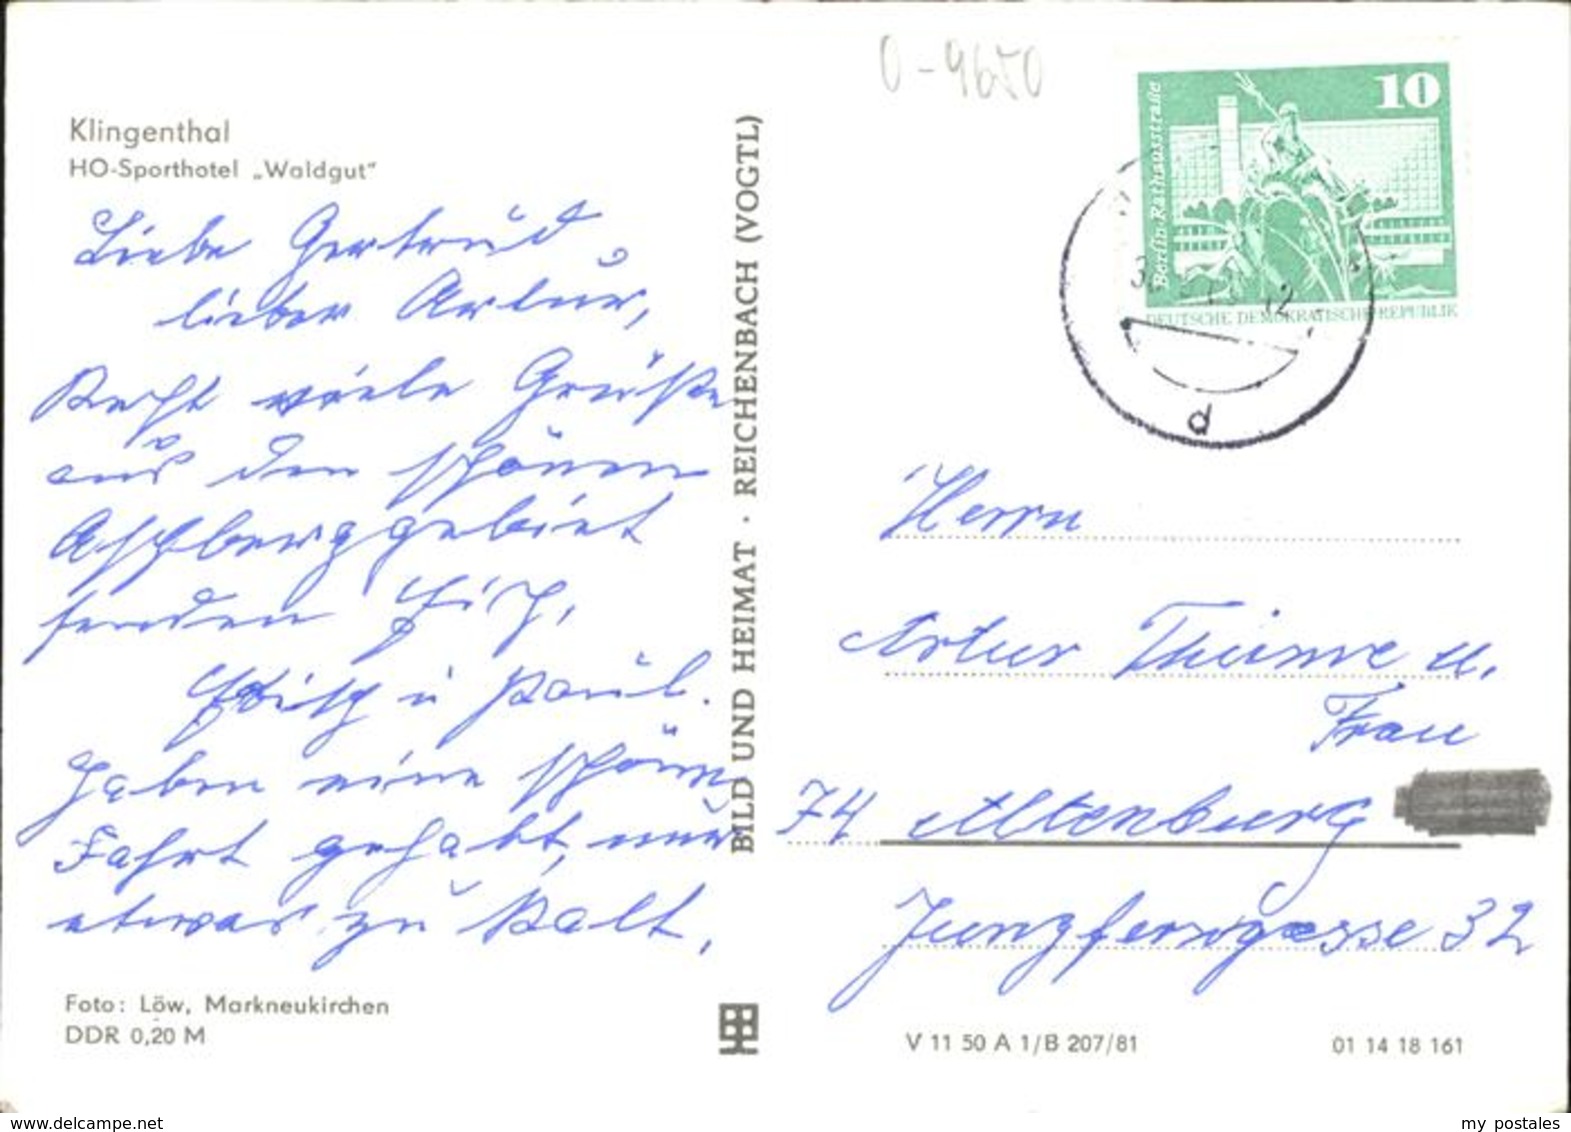 Klingenthal
HO-Sporthotel „Waldgut“
Liebe Gertrud,
lieber Artur,
Recht viele Grüße
aus dem schönen
Aschberggebiet
senden Euch,
u Paul.
Haben eine schöne
Fahrt gehabt, nur
etwas zu kalt.
Foto: Löw, Markneukirchen
DDR 0,20 M
BILD UND HEIMAT · REICHENBACH (VOGTL)
0-9650
10
Berlin-Rathausstraße
DEUTSCHE DEMOKRATISCHE REPUBLIK
12
d
Herrn
Artur Thieme u.
Frau
74 Altenburg
Jungferngasse 32
V 11 50 A 1/B 207/81
01 14 18 161
www.delcampe.net
my postales